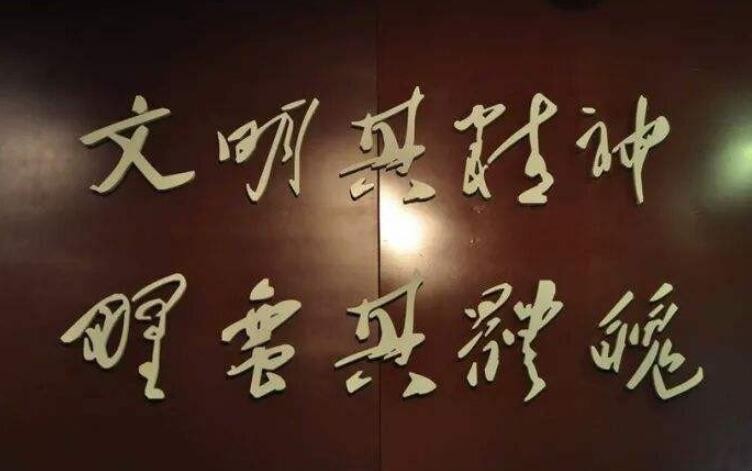 文明其精神
野蛮其體魄